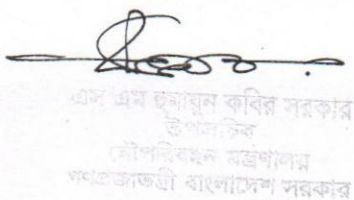 এস এম হুমায়ুন কবির সরকার
উপসচিব
নৌপরিবহন মন্ত্রণালয়
গণপ্রজাতন্ত্রী বাংলাদেশ সরকার